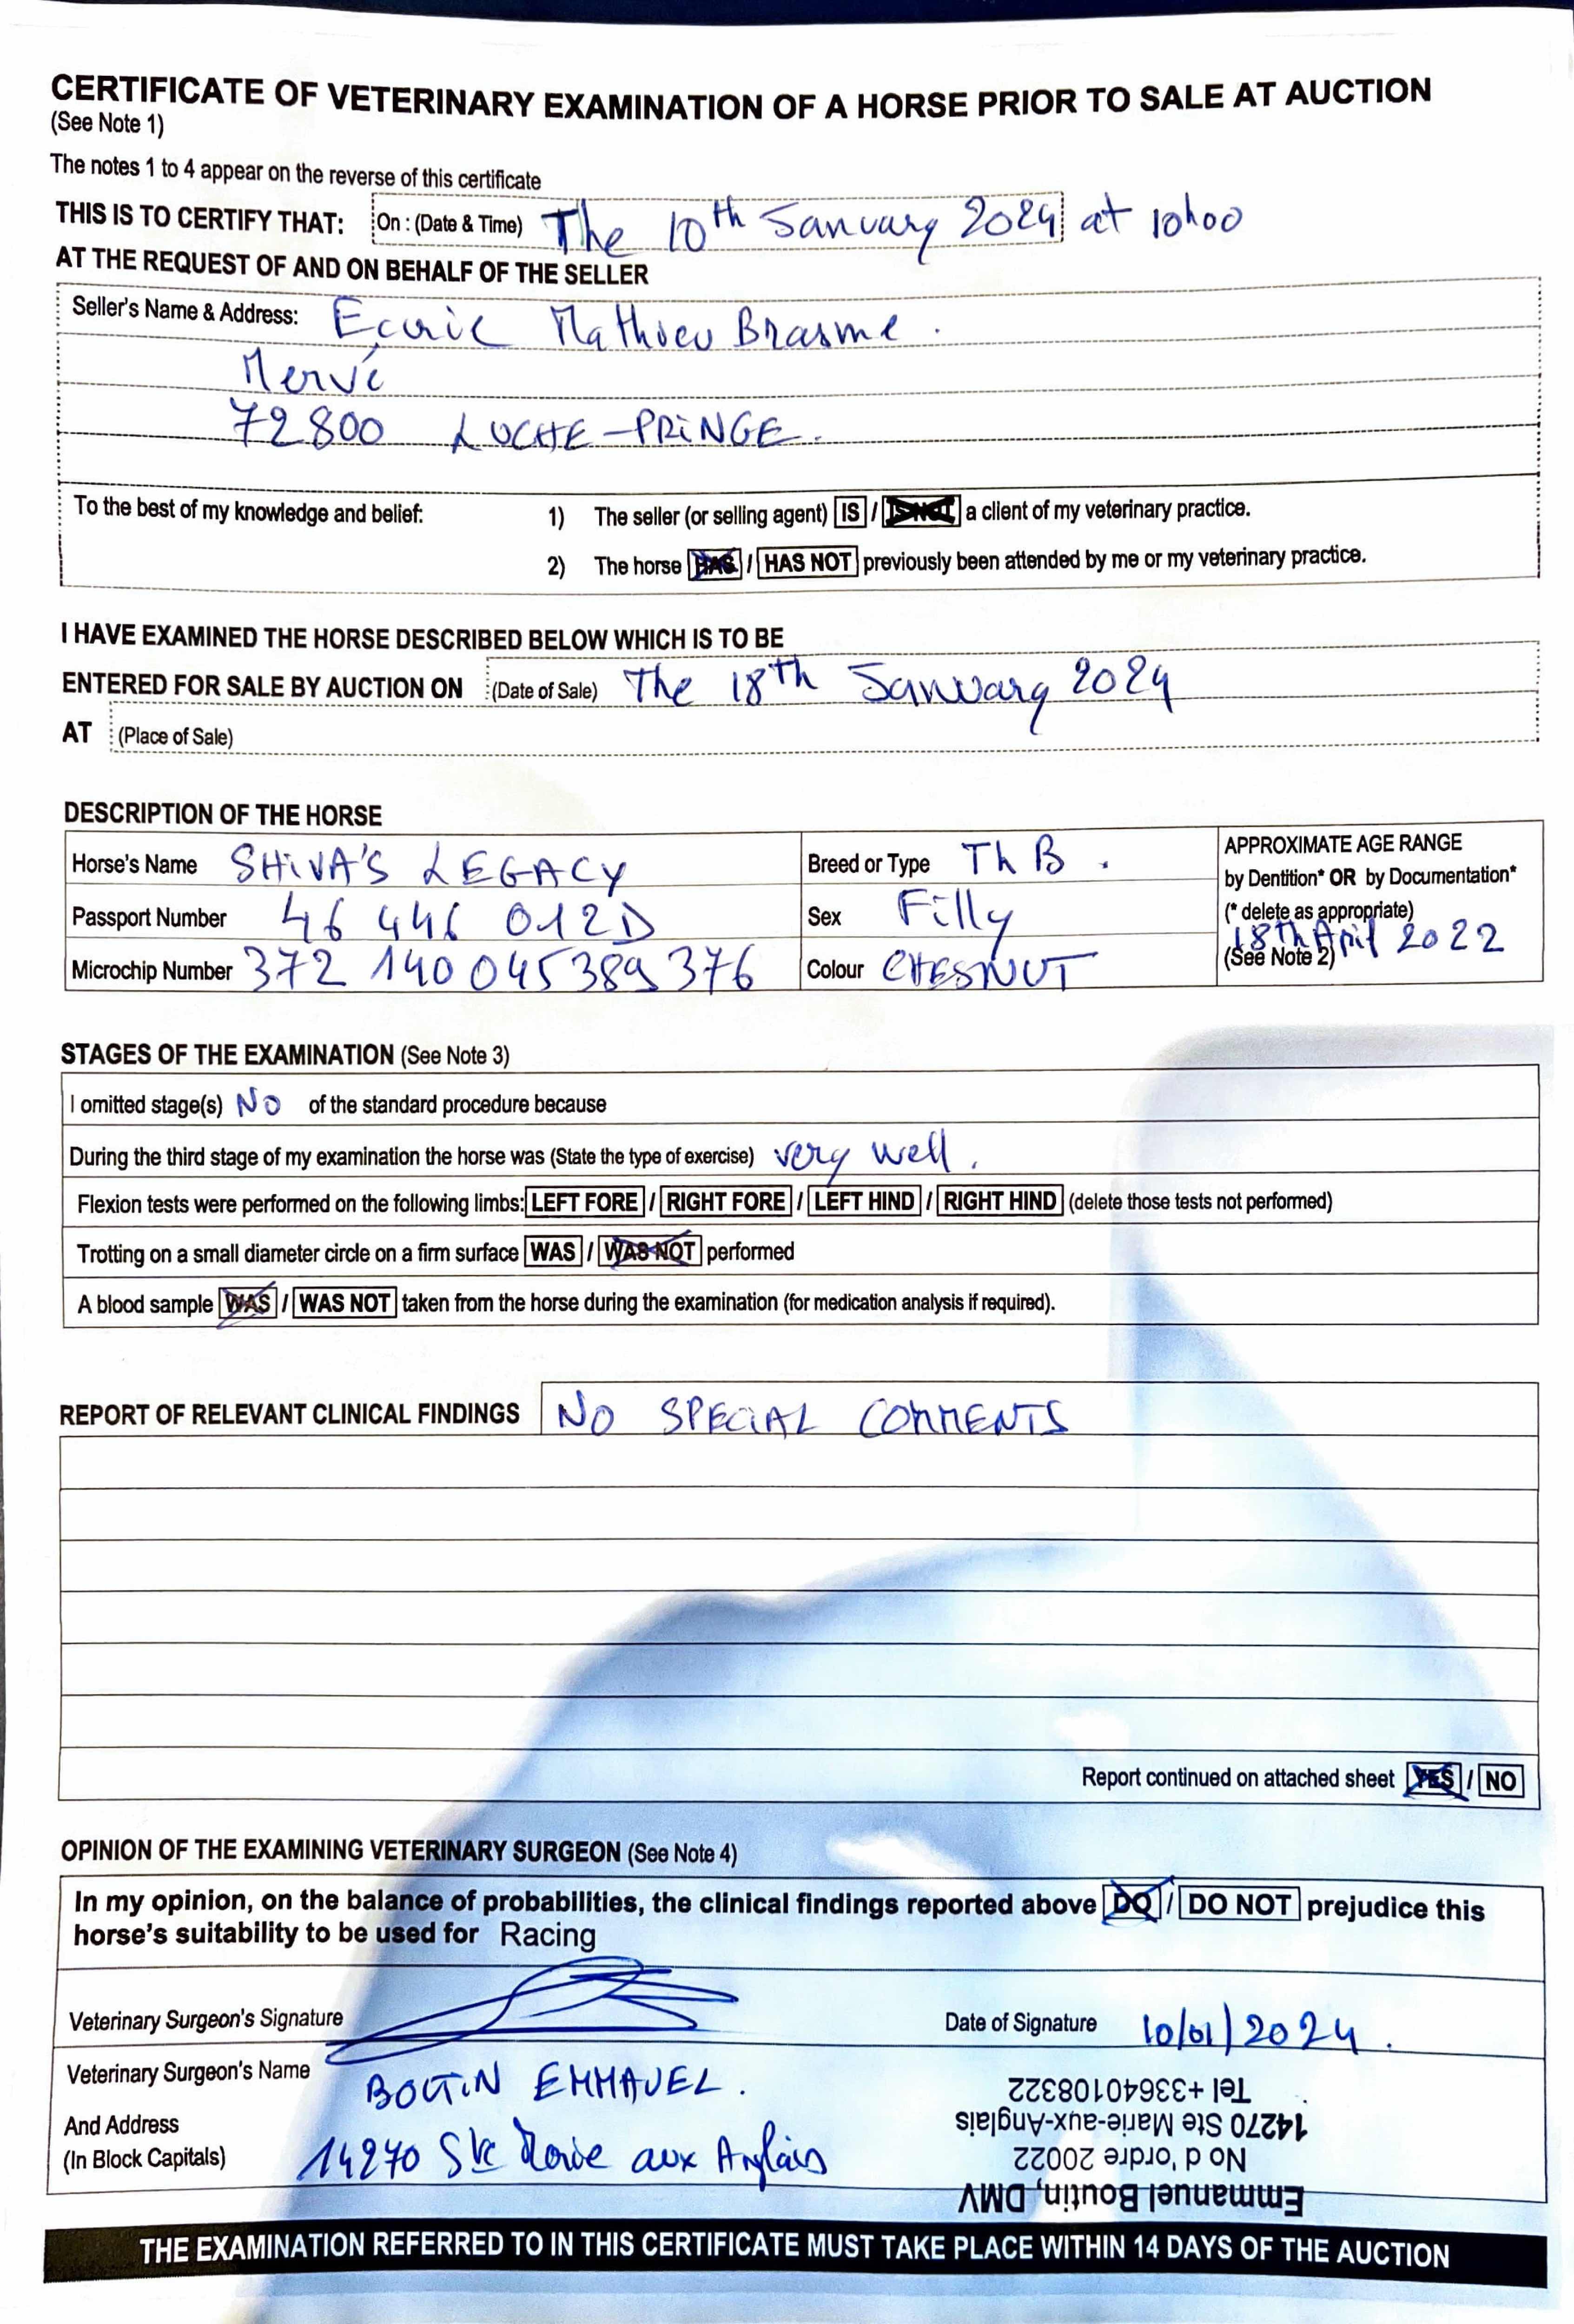 CERTIFICATE OF VETERINARY EXAMINATION OF A HORSE PRIOR TO SALE AT AUCTION
(See Note 1)
The notes 1 to 4 appear on the reverse of this certificate
THIS IS TO CERTIFY THAT: On : (Date & Time) The 10th January 2024 at 10h00
AT THE REQUEST OF AND ON BEHALF OF THE SELLER
Seller's Name & Address: Ecurie Mathieu Brasme.
Mervé
72800 LUCHE-PRINGE.
To the best of my knowledge and belief: 1) The seller (or selling agent) IS / IS NOT a client of my veterinary practice.
2) The horse HAS / HAS NOT previously been attended by me or my veterinary practice.
I HAVE EXAMINED THE HORSE DESCRIBED BELOW WHICH IS TO BE
ENTERED FOR SALE BY AUCTION ON (Date of Sale) The 18th January 2024
AT (Place of Sale)
DESCRIPTION OF THE HORSE
Horse's Name SHIVA'S LEGACY Breed or Type ThB. APPROXIMATE AGE RANGE
by Dentition* OR by Documentation*
Passport Number 46 446 012D Sex Filly (* delete as appropriate)
18th April 2022
Microchip Number 372 140 045 389 376 Colour CHESNUT (See Note 2)
STAGES OF THE EXAMINATION (See Note 3)
I omitted stage(s) NO of the standard procedure because
During the third stage of my examination the horse was (State the type of exercise) very well.
Flexion tests were performed on the following limbs: LEFT FORE / RIGHT FORE / LEFT HIND / RIGHT HIND (delete those tests not performed)
Trotting on a small diameter circle on a firm surface WAS / WAS NOT performed
A blood sample WAS / WAS NOT taken from the horse during the examination (for medication analysis if required).
REPORT OF RELEVANT CLINICAL FINDINGS NO SPECIAL COMMENTS
Report continued on attached sheet YES / NO
OPINION OF THE EXAMINING VETERINARY SURGEON (See Note 4)
In my opinion, on the balance of probabilities, the clinical findings reported above DO / DO NOT prejudice this
horse's suitability to be used for Racing
Veterinary Surgeon's Signature Date of Signature 10/01/2024.
Veterinary Surgeon's Name BOUTIN EMMAUEL.
And Address
(In Block Capitals) 14270 Ste Marie aux Anglais
Emmanuel Boutin, DMV
No d'ordre 20022
14270 Ste Marie-aux-Anglais
Tel +33640108322
THE EXAMINATION REFERRED TO IN THIS CERTIFICATE MUST TAKE PLACE WITHIN 14 DAYS OF THE AUCTION